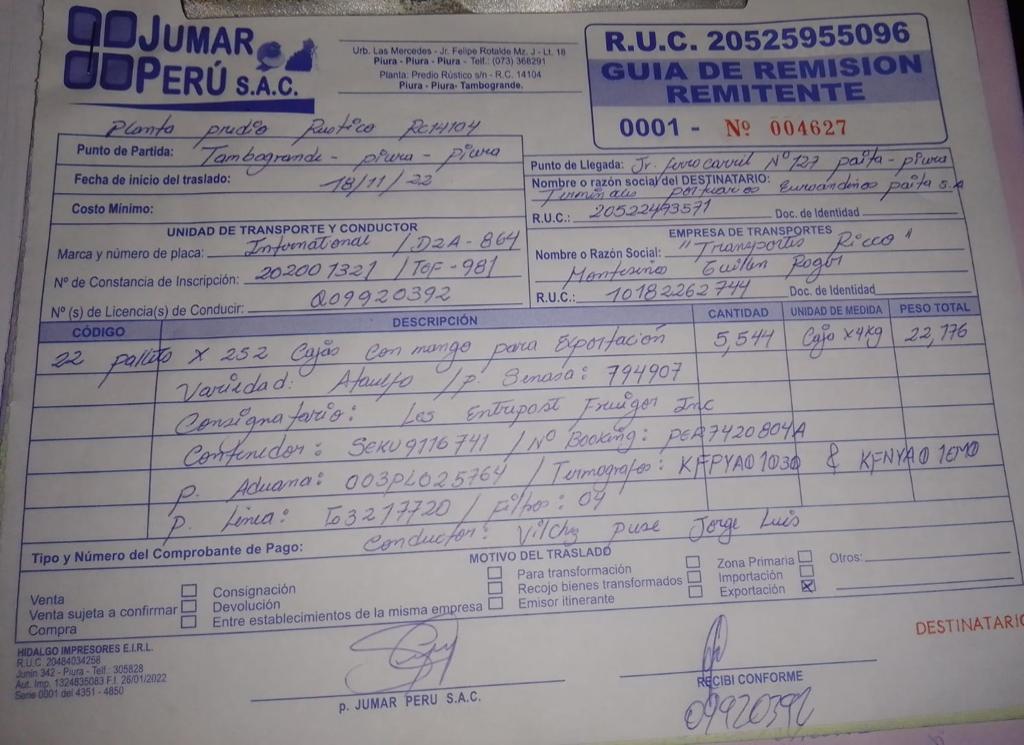 JUMAR
PERÚ S.A.C.
Urb. Las Mercedes - Jr. Felipe Rotalde Mz. J - Lt. 18
Piura - Piura - Piura - Telf.: (073) 368291
Planta: Predio Rústico s/n - R.C. 14104
Piura - Piura- Tambogrande.
R.U.C. 20525955096
GUIA DE REMISION
REMITENTE
0001 - Nº 004627
Planta predio Rustico RC14104
Punto de Partida: Tambogrande - piura - piura
Fecha de inicio del traslado: 18/11/22
Costo Mínimo:
Punto de Llegada: Jr. ferrocarril Nº 127 paita - piura
Nombre o razón social del DESTINATARIO:
Terminales portuarios Euroandinos paita s.A
R.U.C.: 20522473571 Doc. de Identidad
UNIDAD DE TRANSPORTE Y CONDUCTOR
Marca y número de placa: International / D2A - 864
Nº de Constancia de Inscripción: 202001321 / TGF - 981
Nº (s) de Licencia(s) de Conducir: Q09920392
EMPRESA DE TRANSPORTES
Nombre o Razón Social: "Transportes Ricco"
Montesinos Guillen Roger
R.U.C.: 10182262744 Doc. de Identidad
CÓDIGO DESCRIPCIÓN CANTIDAD UNIDAD DE MEDIDA PESO TOTAL
22 pallets x 252 Cajas con mango para Exportación 5,544 Caja x4kg 22,176
Variedad: Ataulfo / p. Senasa: 794907
Consignatario: Les Entrepost Fruigor Inc
Contenedor: SEKU9116741 / Nº Booking: PER7420804A
p. Aduana: 003PL025764 / Termografos: KFPYA01030 & KFNYA01
p. Linea: 63217720 / Filtros: 04
Conductor: Vilchez puse Jorge Luis
Tipo y Número del Comprobante de Pago:
MOTIVO DEL TRASLADO
Venta
Venta sujeta a confirmar
Compra
Consignación
Devolución
Entre establecimientos de la misma empresa
Para transformación
Recojo bienes transformados
Emisor itinerante
Zona Primaria
Importación
Exportación
Otros:
HIDALGO IMPRESORES E.I.R.L.
R.U.C. 20484034258
Junin 342 - Piura - Telf.: 305828
Aut. Imp. 1324835083 F.I. 26/01/2022
Serie 0001 del 4351 - 4850
p. JUMAR PERU S.A.C.
RECIBI CONFORME
09920392
DESTINATARIO